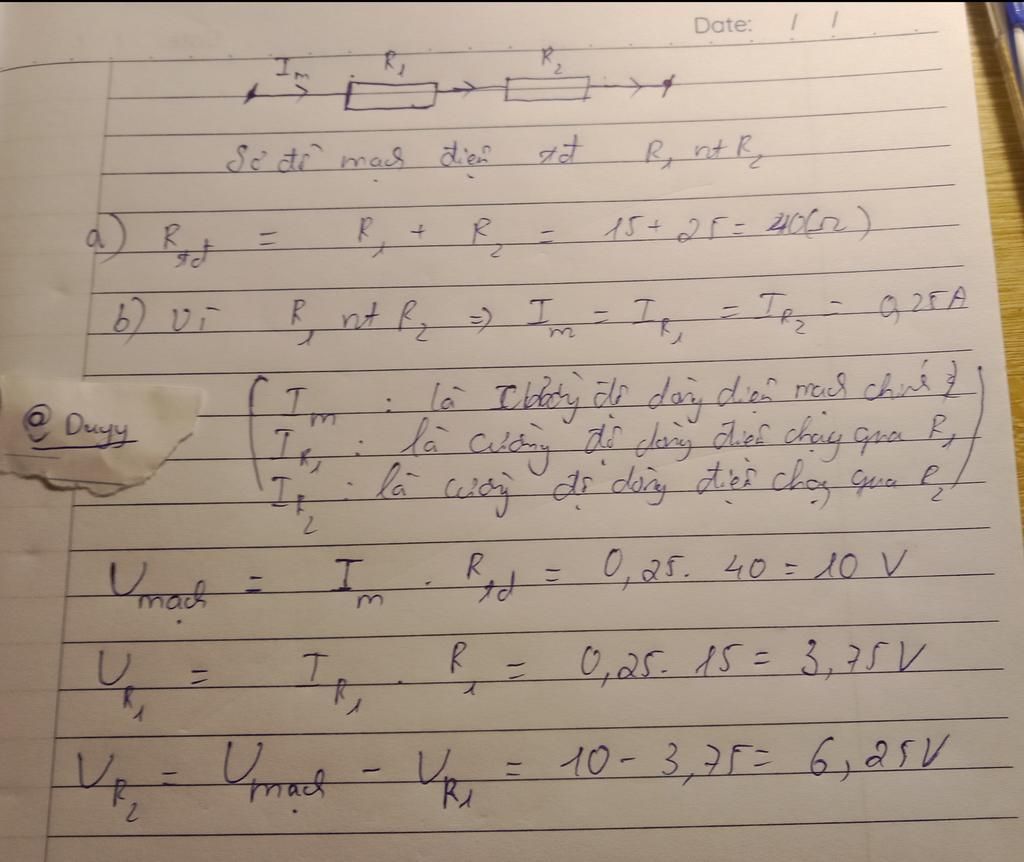 Date: / /
I_m R_1 R_2
Sơ đồ mạch điện tđ R_1 nt R_2
a) R_tđ = R_1 + R_2 = 15 + 25 = 40(Ω)
b) Vì R_1 nt R_2 => I_m = I_R_1 = I_R_2 = 0,25A
@ Duyy
I_m : là cường độ dòng điện mạch chính
I_R_1 : là cường độ dòng điện chạy qua R_1
I_R_2 : là cường độ dòng điện chạy qua R_2
U_mạch = I_m . R_tđ = 0,25. 40 = 10 V
U_R_1 = I_R_1 . R_1 = 0,25. 15 = 3,75V
U_R_2 = U_mạch - U_R1 = 10 - 3,75 = 6,25V